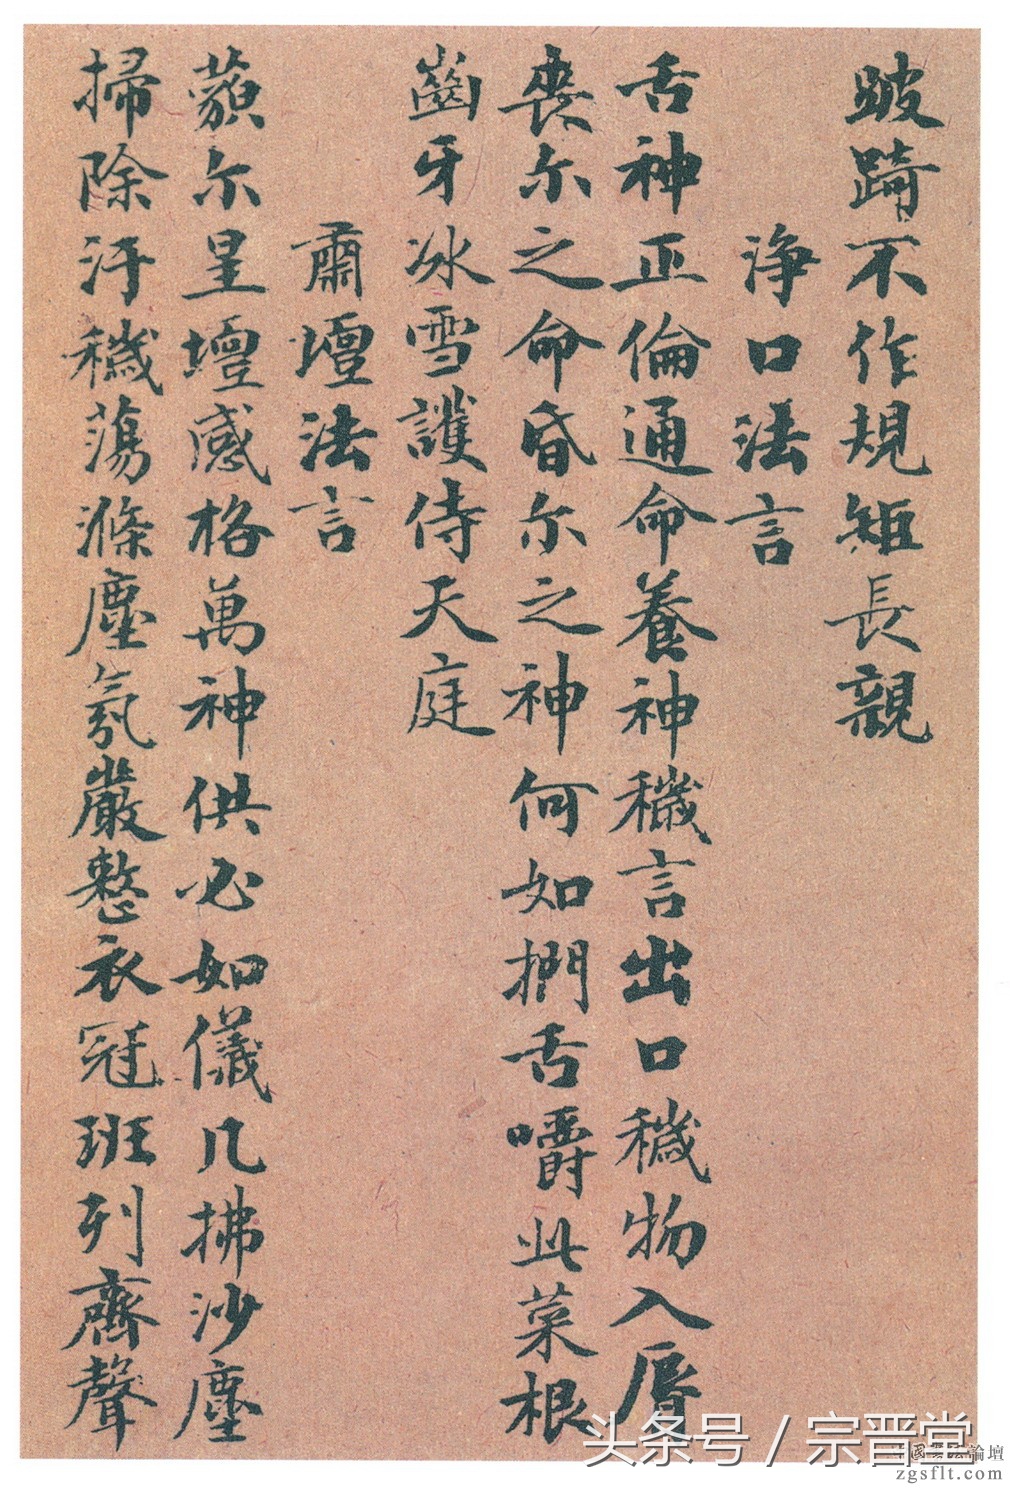 跛踦不作規矩長親
淨口法言
舌神正倫通命養神穢言出口穢物入脣
喪尔之命昏尔之神何如捫舌嚼此菜根
齒牙冰雪護侍天庭
肅壇法言
藐尔星壇感格萬神供必如儀几拂沙塵
掃除汙穢蕩滌塵氛嚴整衣冠班列齊聲
头条号 / 宗晋堂
中國書法論壇
zgsflt.com